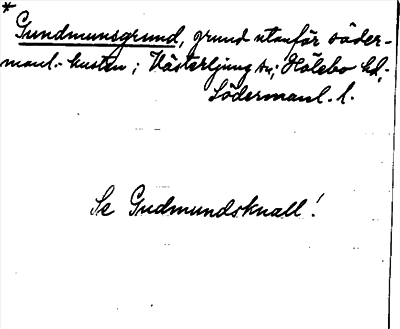 *
Gundmunsgrund, grund utanför söder-
manl.-kusten; Västerljung sn; Hölebo hd,
Södermanl. l.
Se Gudmundsknall!